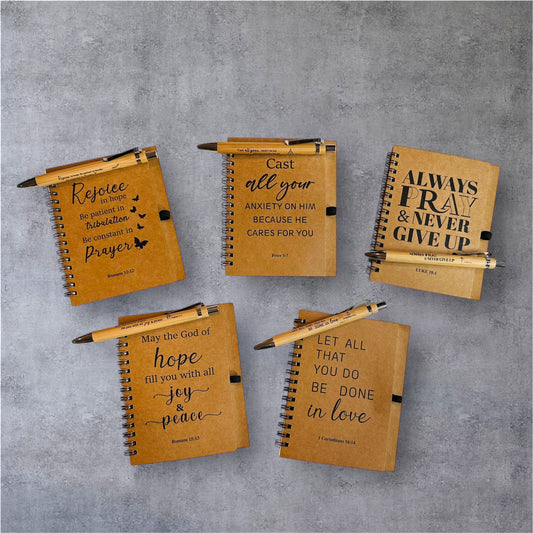 Rejoice
in hope
Be patient in
tribulation
Be constant in
Prayer
Romans 12:12
Cast
all your
ANXIETY ON HIM
BECAUSE HE
CARES FOR YOU
Peter 5:7
ALWAYS
PRAY
& NEVER
GIVE UP
LUKE 18:1
May the God of
hope
fill you with all
joy
&
peace
Romans 15:13
LET ALL
THAT
YOU DO
BE DONE
in love
1 Corinthians 16:14